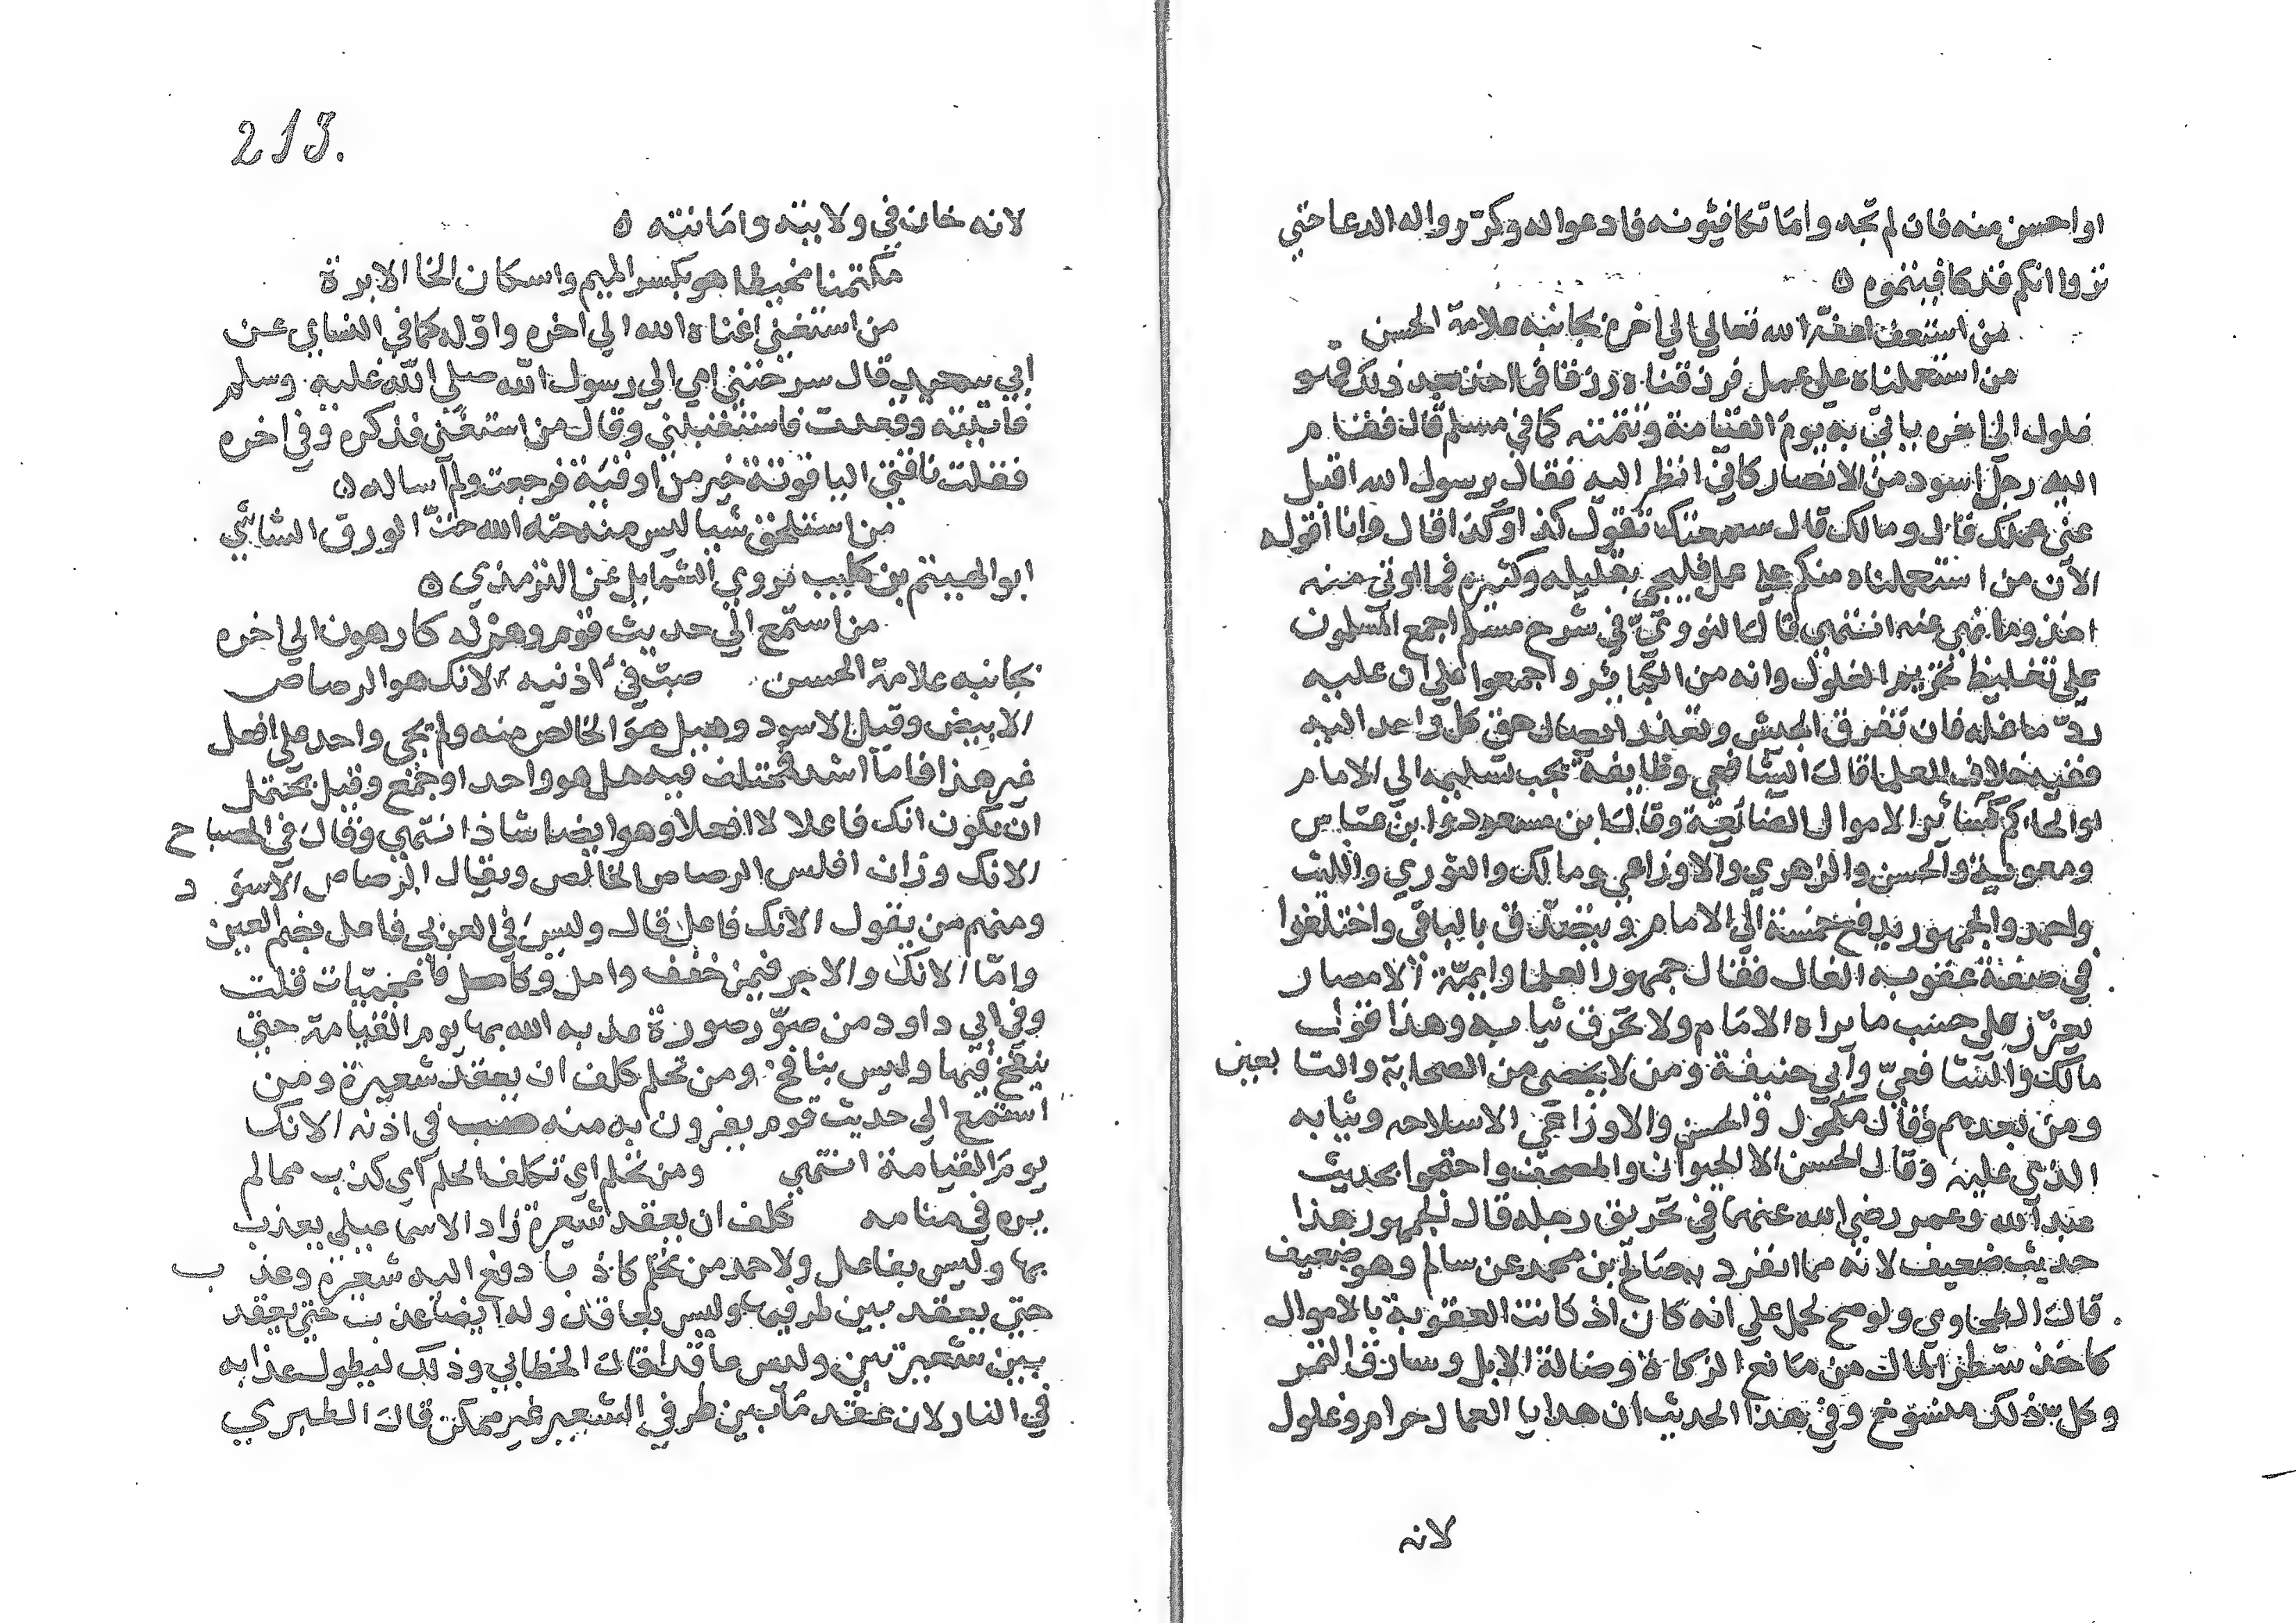 او احسن منه فان لم تجدوا ما تكافيونه فادعوا له وكرروا له الدعا حتي
تروا انكم قد كافيتموه ه
من استعف اعفه الله تعالي الي اخره بجانبه علامة الحسن
من استعملناه علي عمل فرزقناه رزقا فما اخذ بعد ذلك فهو
غلول الي اخره ياتي به يوم القيامة وتتمته كما في مسلم قال فقام
اليه رجل اسود من الانصار كاني انظر اليه فقال يرسول الله اقبل
عني عملك قال ومالك قال سمعتك تقول كذا وكذا قال وانا اقوله
الآن من استعملناه منكم علي عمل فليجي بقليله وكثيره فما اوتي منه
اخذ وما نهي عنه انتهي قال النووي في شرح مسلم اجمع المسلمون
علي تغليظ تحريم الغلول وانه من الكبائر واجمعوا علي ان عليه
رد ما غله فان تفرق الجيش وتعذر ايصال حق كل واحد اليه
ففيه خلاف للعلما قال الشافعي وطايفة يجب تسليمه الي الامام
او الحاكم كسائر الاموال الضائعة وقال ابن مسعود وابن عباس
ومعوية والحسن والزهري والاوزاعي ومالك والثوري والليث
واحمد والجمهور يدفع خمسة الي الامام ويتصدق بالباقي واختلفوا
في صفة عقوبه الغال فقال جمهور العلما وايمة الامصار
يعزر علي حسب ما يراه الامام ولا يحرق ثيابه وهذا قول
مالك والشافعي وابي حنيفة ومن لا يحصي من الصحابة والتابعين
ومن بعدهم وقال مكحول والحسن والاوزاعي الا سلاحه وثيابه
الذي عليه وقال الحسن الا الحيوان والمصحف واحتجوا بحديث
عبد الله وعمر رضي الله عنهما في تحريق رحله قال الجمهور هذا
حديث ضعيف لانه مما انفرد به صالح بن محمد عن سالم وهو ضعيف
قال الطحاوي ولو صح لحمل علي انه كان اذ كانت العقوبة بالاموال
كاخذ شطر المال من مانع الزكاة وضالة الابل وسارق التمر
وكل ذلك منسوخ وفي هذا الحديث ان هدايا العمال حرام وغلول
لانه
213.
لانه خان في ولايته وامانته ه
مكتمنا مخيطا هو بكسر الميم واسكان الخا الابرة
من استغني اغناه الله الي اخره واوله كما في النسايي عن
ابي سعيد قال سرحتني امي الي رسول الله صلي الله عليه وسلم
فاتيته وقعدت فاستقبلني وقال من استغني فذكره وفي اخره
فقلت ناقتي الياقوتة خير من اوقية فرجعت ولم اساله ه
من استلحق شيا ليس منه حته الله حت الورق الشاشي
ابو الهيثم بن كليب يروي الشمايل عن الترمذي ه
من استمع الي حديث قوم وهم له كارهون الي اخره
بجانبه علامة الحسن صب في اذنيه الانك هو الرصاص
الابيض وقيل الاسود وقيل هو الخالص منه ولم يجي واحد علي افعل
غير هذا فاما اشد فمختلف فيه هل هو واحد او جمع وقيل يحتمل
ان يكون انك فاعلا لا افعلا وهو ايضا شاذ انتهي وقال في المصباح
الانك وزان افلس الرصاص الخالص ويقال الرصاص الاسود
ومنهم من يقول الآنك فاعل قال وليس في العربي فاعل بضم العين
واما الانك والاجر فيمن خفف وامل وكاصل فاعجميات قلت
وفي ابي داود من صور صورة عذبه الله بها يوم القيامة حتي
ينفخ فيها وليس بنافخ ومن تحلم كلف ان يعقد شعيرة ومن
استمع الي حديث قوم يفرون به منه صب في اذنه الانك
يوم القيامة انتهي ومن تحلم اي تكلف الحلم اي كذب مما لم
يره في منامه كلف ان يعقد شعيرة زاد الاسماعيلي يعذب
بها وليس بفاعل ولاحمد من تحلم كاذبا دفع اليه شعيرة وعذب
حتي يعقد بين طرفيها وليس بعاقد وله ايضا عذب حتي يعقد
بين شعيرتين وليس عاقدا قال الخطابي وذلك ليطول عذابه
في النار لان عقد ما بين طرفي الشعير غير ممكن قال الطبري